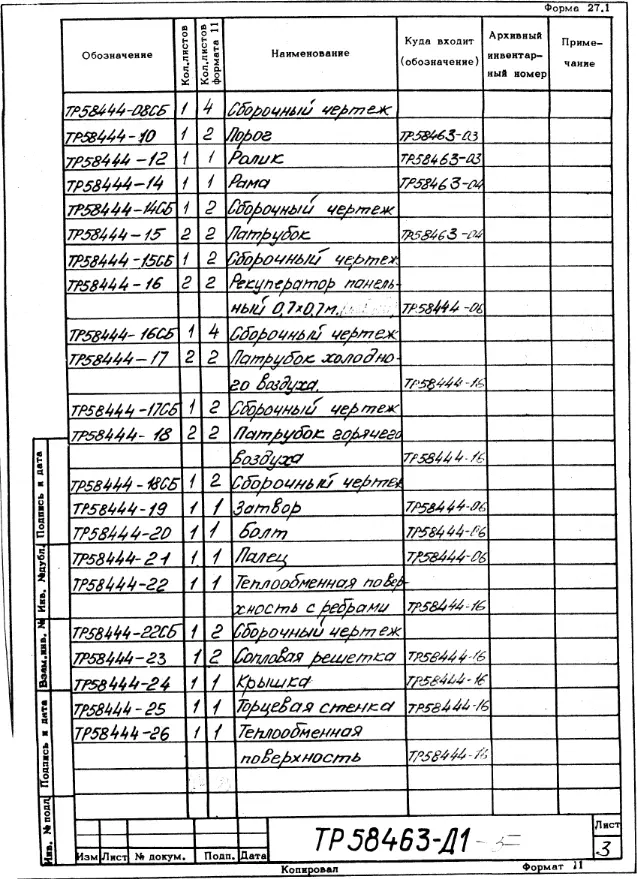 Форма 27.1
Обозначение Кол.листов Кол.листов формата 11 Наименование Куда входит (обозначение) Архивный инвентар- ный номер Приме- чание
ТР58444-08СБ 1 4 Сборочный чертеж
ТР58444-10 1 2 Порог ТР58463-03
ТР58444-12 1 1 Ролик ТР58463-03
ТР58444-14 1 1 Рама ТР58463-04
ТР58444-14СБ 1 2 Сборочный чертеж
ТР58444-15 2 2 Патрубок ТР58463-04
ТР58444-15СБ 1 2 Сборочный чертеж
ТР58444-16 2 2 Рекуператор панель-
ный 0,7х0,7м. ТР58444-06
ТР58444-16СБ 1 4 Сборочный чертеж
ТР58444-17 2 2 Патрубок холодно-
го воздуха. ТР58444-16
ТР58444-17СБ 1 2 Сборочный чертеж
ТР58444-18 2 2 Патрубок горячего
воздуха ТР58444-16
ТР58444-18СБ 1 2 Сборочный чертеж
ТР58444-19 1 1 Затвор ТР58444-06
ТР58444-20 1 1 Болт ТР58444-06
ТР58444-21 1 1 Палец ТР58444-06
ТР58444-22 1 1 Теплообменная повер-
хность с ребрами ТР58444-16
ТР58444-22СБ 1 2 Сборочный чертеж
ТР58444-23 1 2 Сопловая решетка ТР58444-16
ТР58444-24 1 1 Крышка ТР58444-16
ТР58444-25 1 1 Торцевая стенка ТР58444-16
ТР58444-26 1 1 Теплообменная
поверхность ТР58444-16
Подпись и дата
Инв. №дубл.
Взам.инв. №
Подпись и дата
Инв. № подл
Изм Лист № докум. Подп. Дата
ТР58463-Д1
Лист
3
Копировал Формат 11